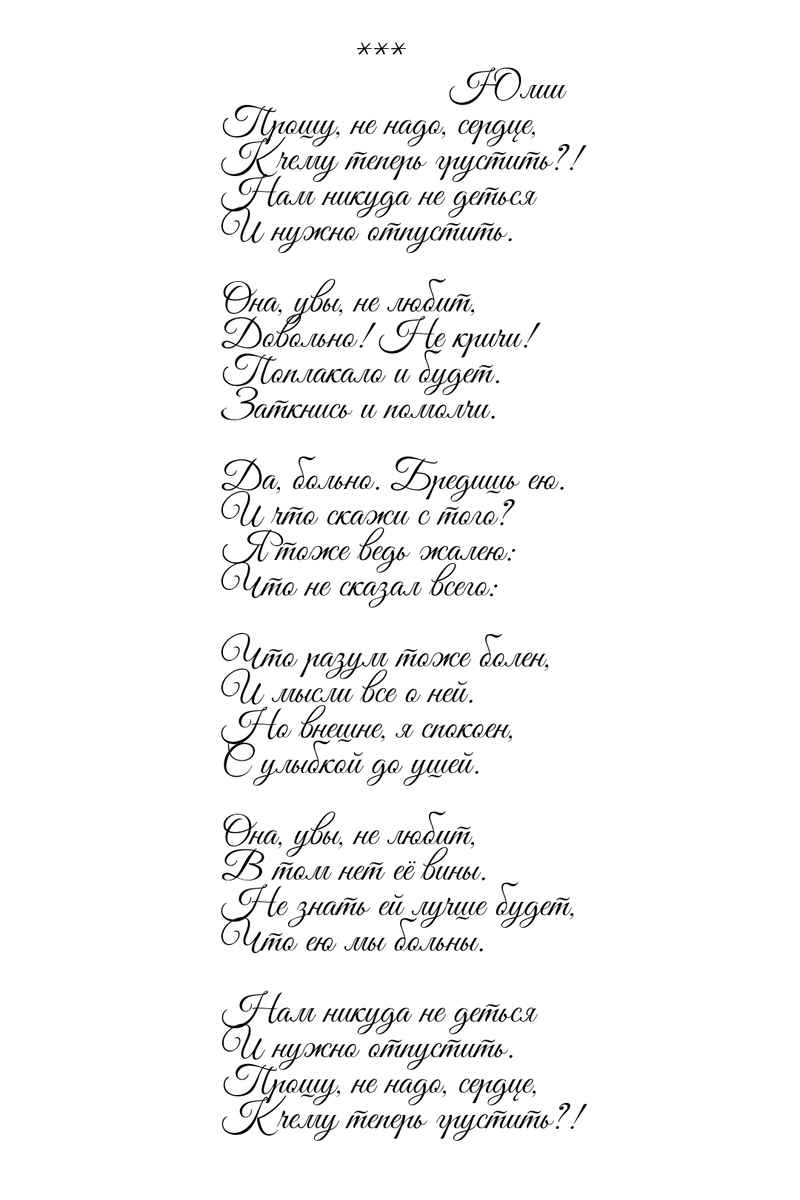 ***
Юлии
Прошу, не надо, сердце,
К чему теперь грустить?!
Нам никуда не деться
И нужно отпустить.
Она, увы, не любит,
Довольно! Не кричи!
Поплакало и будет.
Заткнись и помолчи.
Да, больно. Бредишь ею.
И что скажи с того?
Я тоже ведь жалею:
Что не сказал всего:
Что разум тоже болен,
И мысли все о ней.
Но внешне, я спокоен,
С улыбкой до ушей.
Она, увы, не любит,
В том нет её вины.
Не знать ей лучше будет,
Что ею мы больны.
Нам никуда не деться
И нужно отпустить.
Прошу, не надо, сердце,
К чему теперь грустить?!